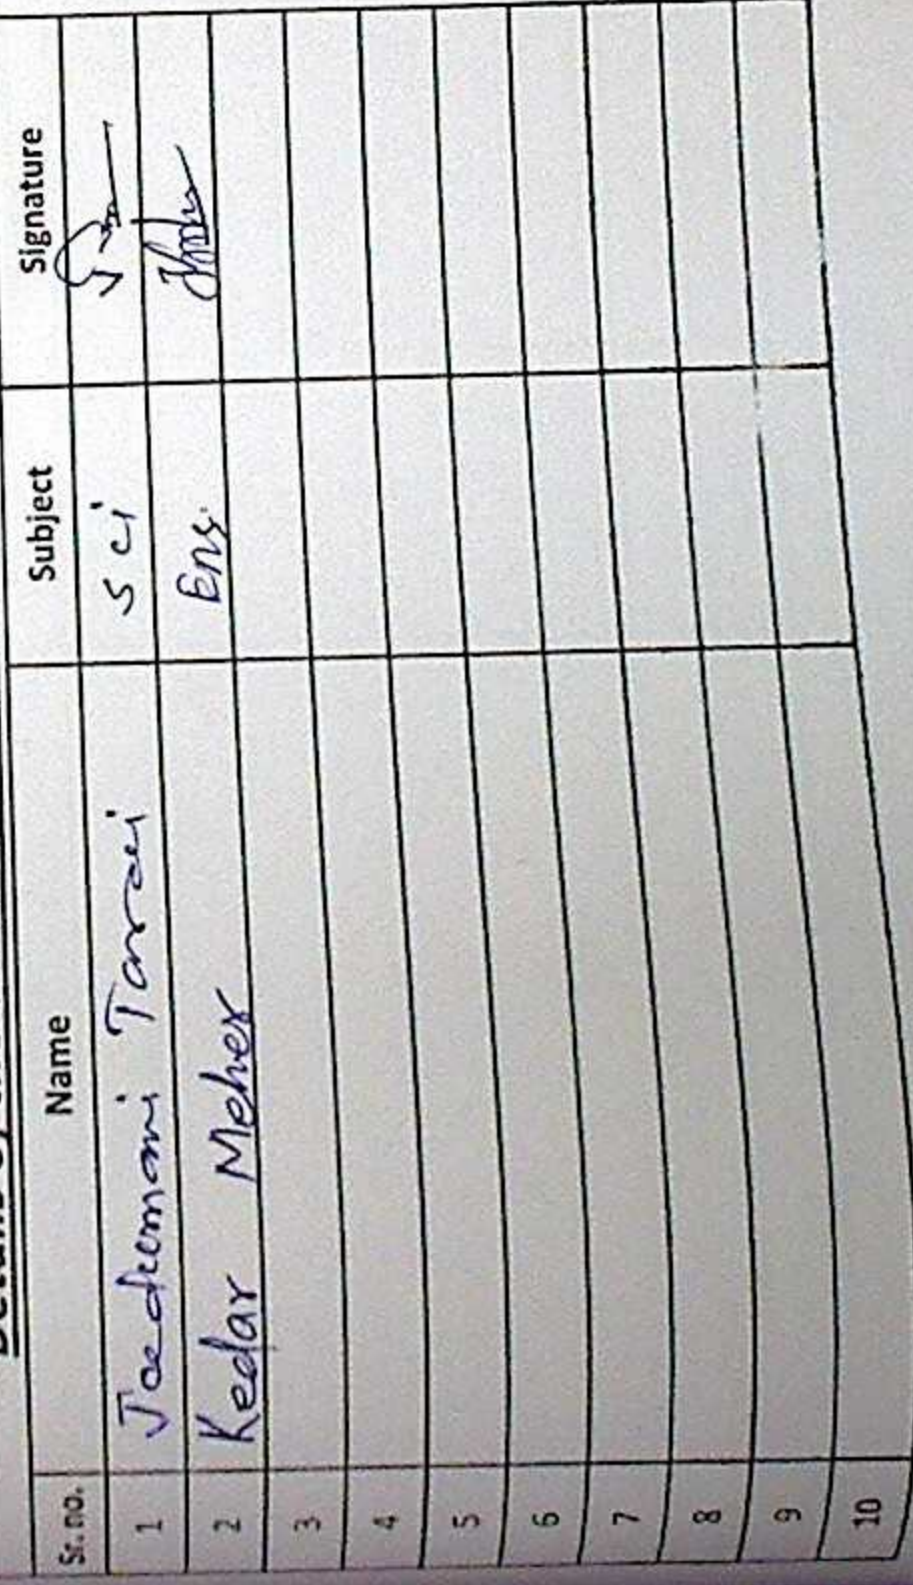 Sr. no. Name Subject Signature
1 Jadumani Tarai Sci
2 Kedar Meher Eng.
3
4
5
6
7
8
9
10